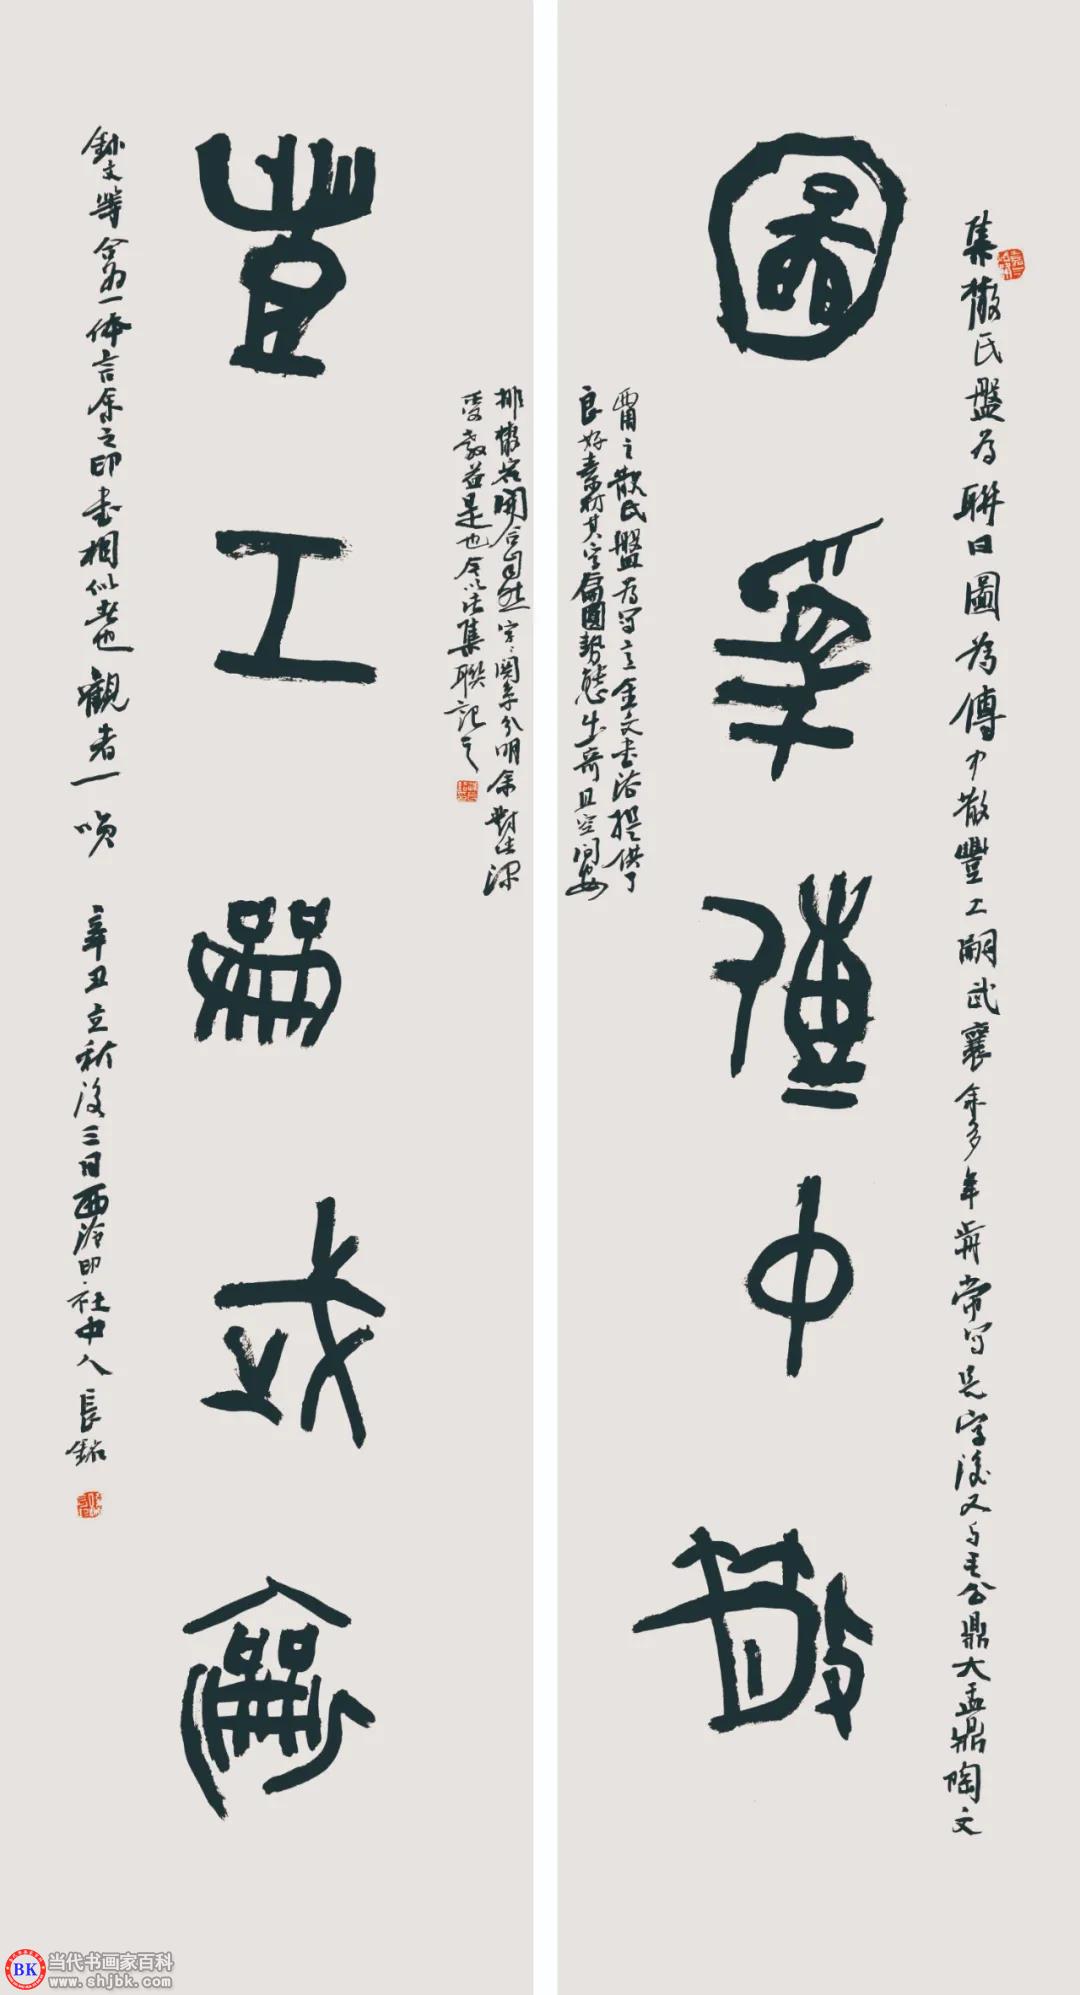 圖為傳中散
集散氏盤為聯曰圖為傳中散豐工嗣武襄余多年前常写是字後又与毛公鼎大盂鼎陶文
西周之散氏盤為写意金文書法提供了
良好素材其字扁圓勢態生奇且空間安
豐工嗣武襄
排散宕開合自然字字関系分明余對此深
受教益是也今以法集聯記之
鉥文等合為一体言余之印書相似者也觀者一噗 辛丑立秋後三日西泠印社中人長鉐
BK
当代书画家百科
www.shjbk.com